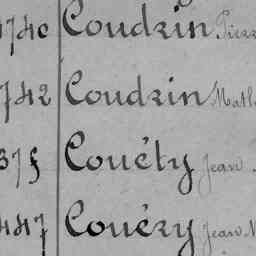 1740 Coudrin Pierr
742 Coudrin Math
375 Couéty Jean
447 Couéry Jean M